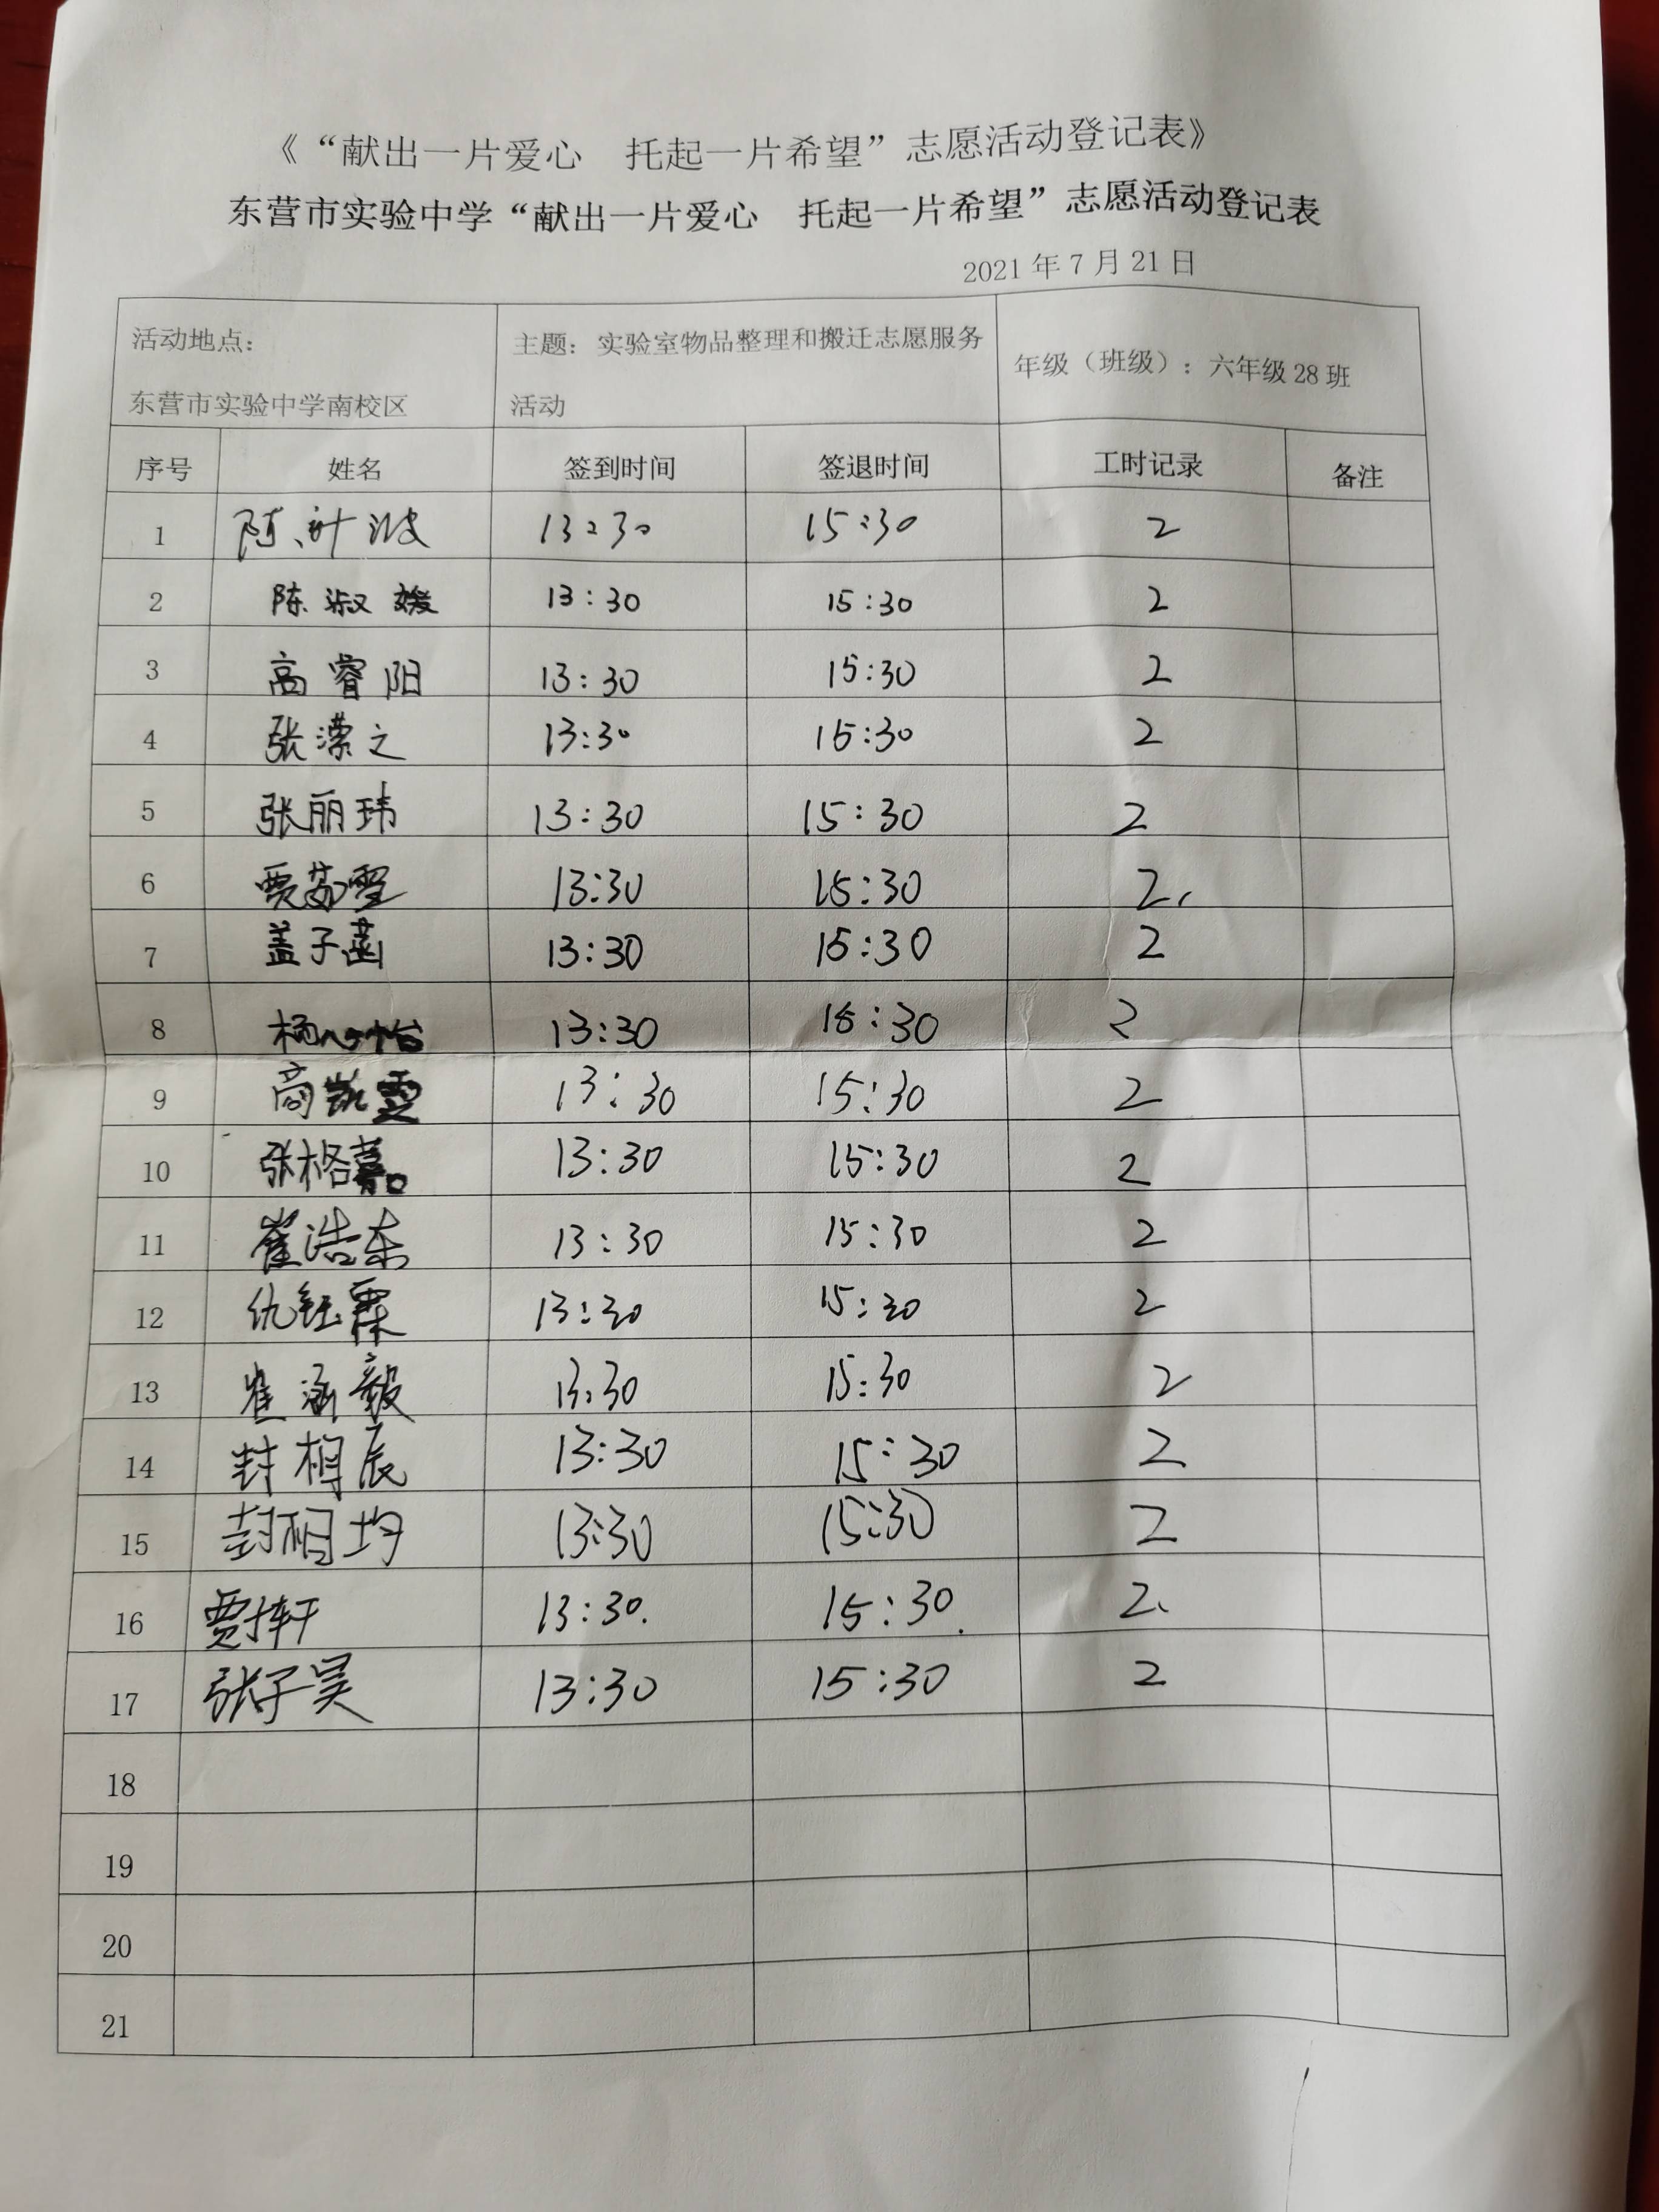 《“献出一片爱心　托起一片希望”志愿活动登记表》
东营市实验中学“献出一片爱心　托起一片希望”志愿活动登记表
2021年7月21日
活动地点： 主题：实验室物品整理和搬迁志愿服务 年级（班级）：六年级28班
东营市实验中学南校区 活动
序号 姓名 签到时间 签退时间 工时记录 备注
1 13:30 15:30 2
2 陈淑媛 13:30 15:30 2
3 高睿阳 13:30 15:30 2
4 张潆之 13:30 15:30 2
5 张丽玮 13:30 15:30 2
6 13:30 15:30 2
7 盖子菡 13:30 15:30 2
8 杨心怡 13:30 15:30 2
9 商凯雯 13:30 15:30 2
10 张格 13:30 15:30 2
11 崔浩东 13:30 15:30 2
12 仇钰霖 13:30 15:30 2
13 崔涵毅 13:30 15:30 2
14 封相辰 13:30 15:30 2
15 封相均 13:30 15:30 2
16 贾轩 13:30. 15:30. 2
17 张子昊 13:30 15:30 2
18
19
20
21